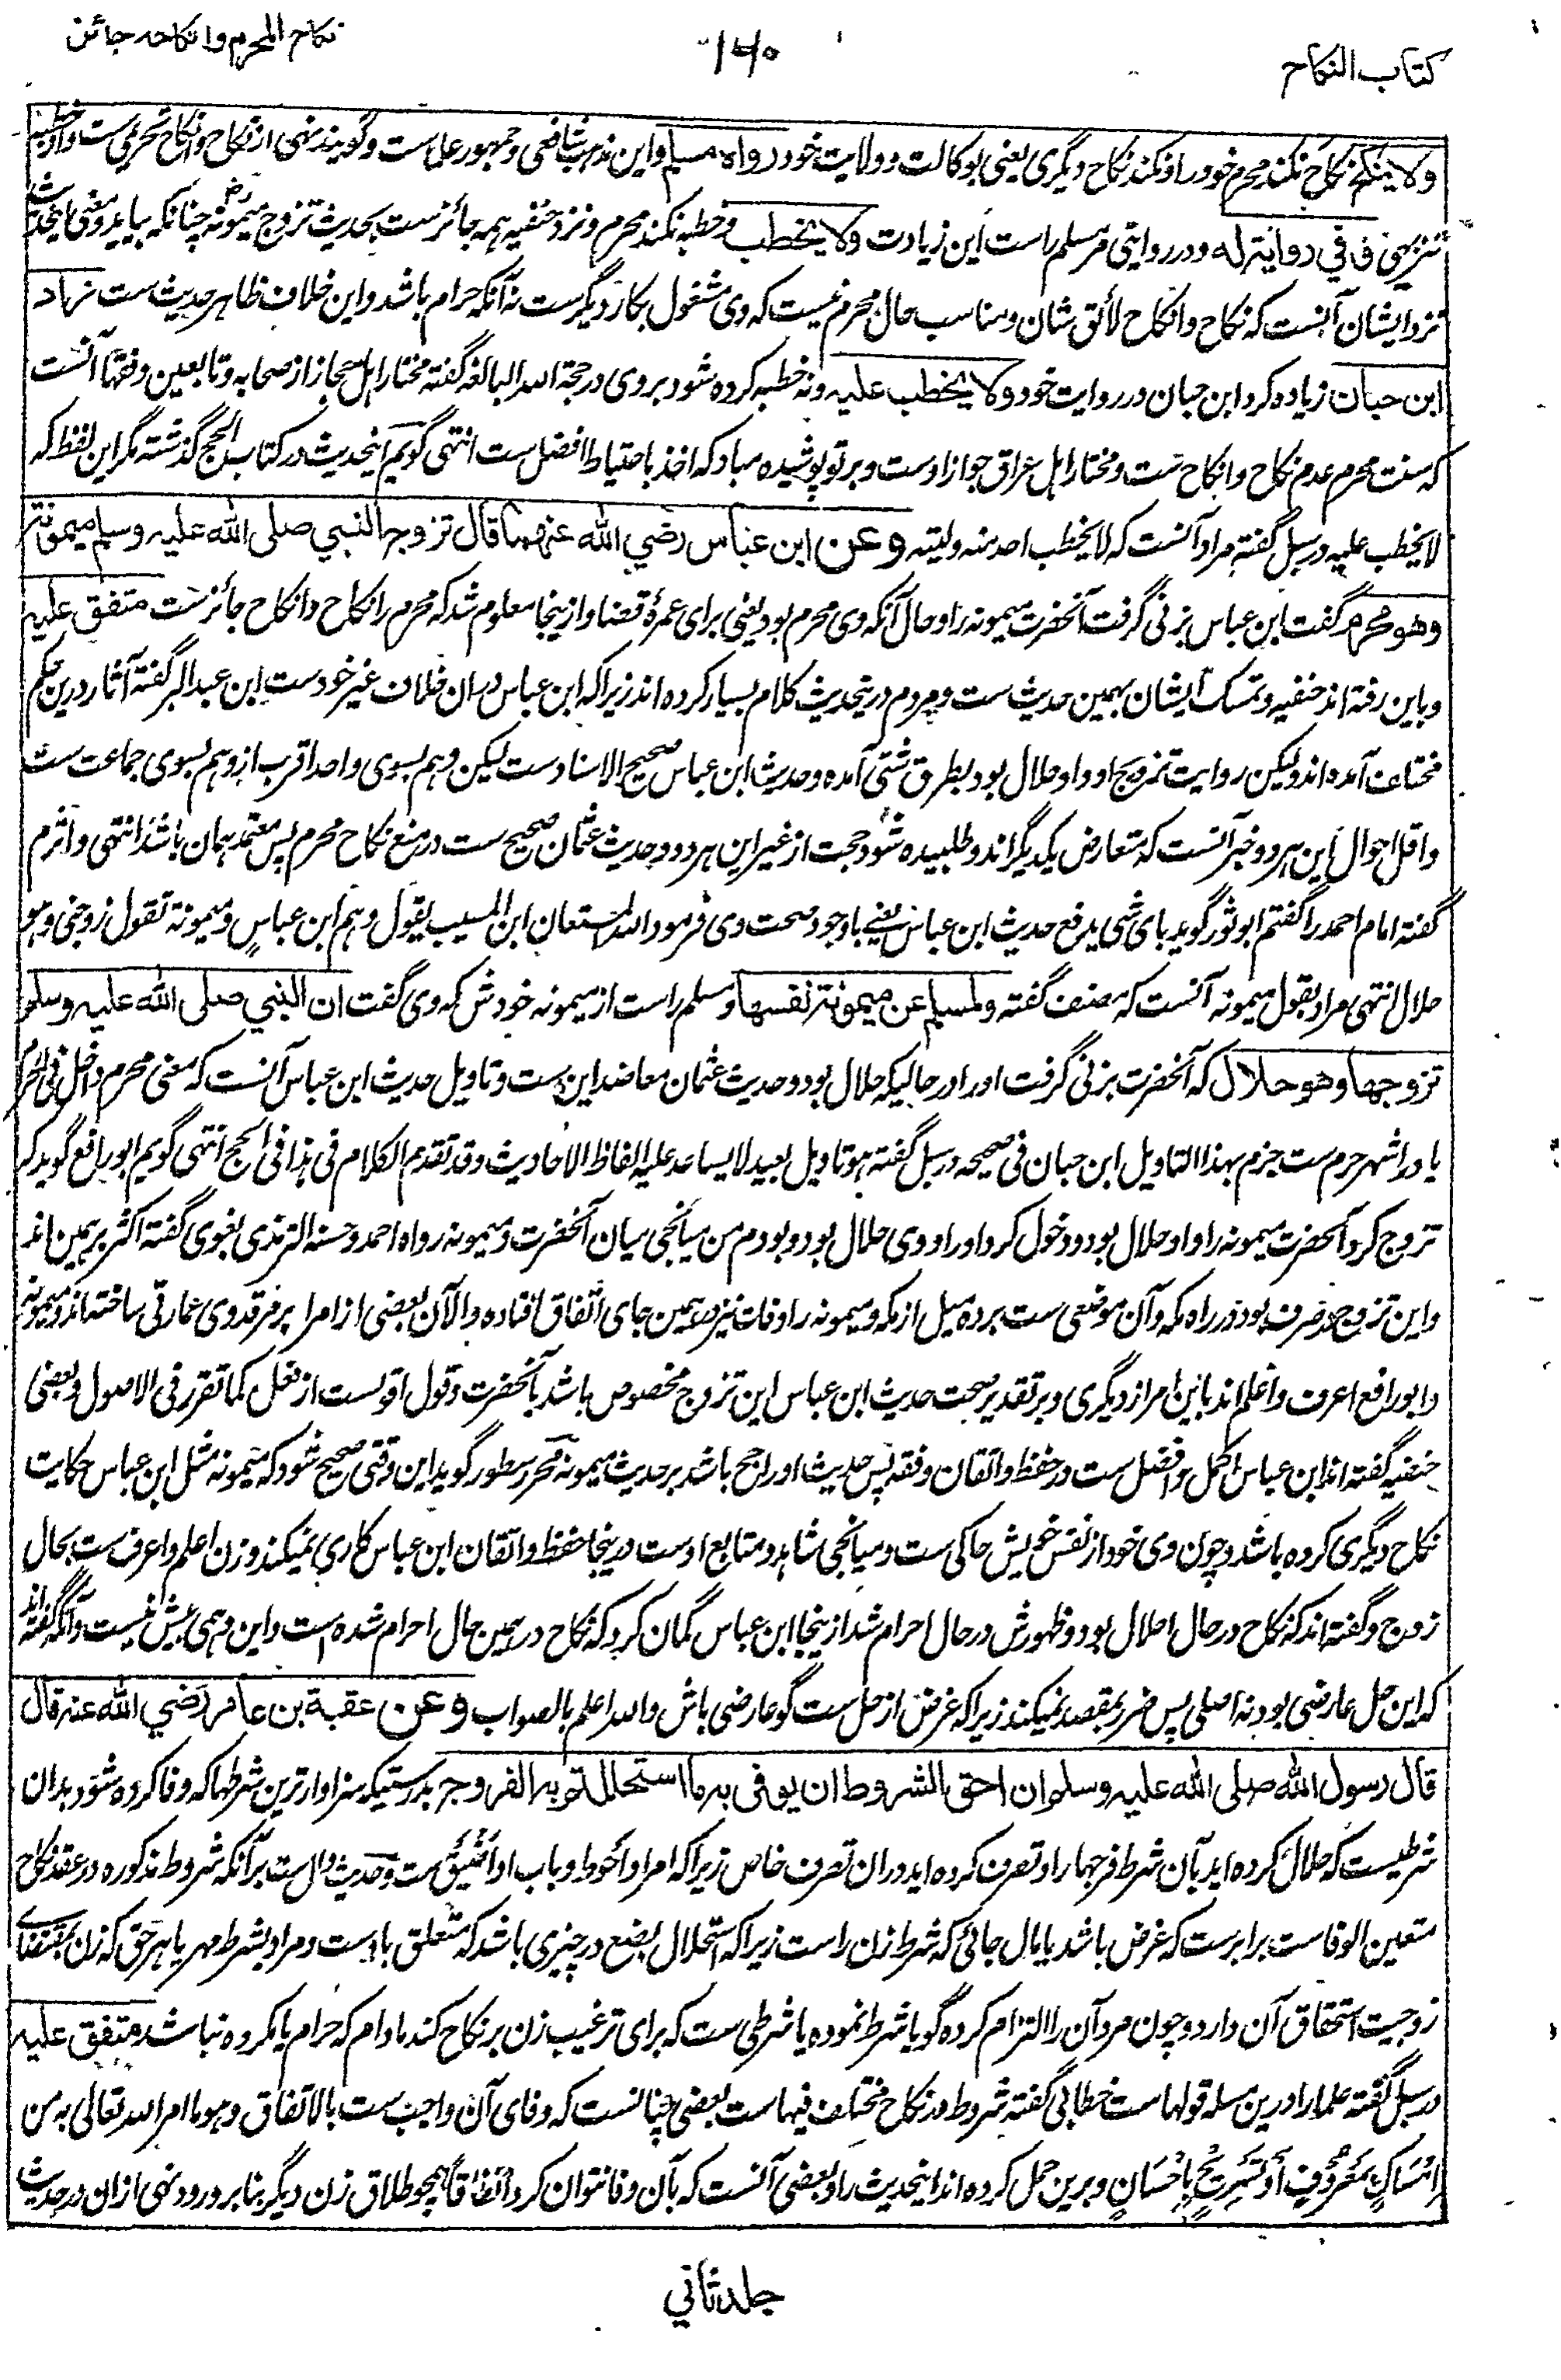 کتاب النکاح
۱۴۰
نکاح المحرم وانکاحه جائز
ولا ینکح نکاح نکند محرم خود را و نکند نکاح دیگری یعنی بوکالت و ولایت خود رواه مسلم و این مذهب شافعی و جمهور علماست و گویند نهی از نکاح و انکاح تحریمی ست و از خطبه
تنزیهی وفی روایة له و در روایتی مر مسلم راست این زیادت ولا یخطب و خطبه نکند محرم و نزد حنفیه همه جائزست بحدیث تزوج میمونه رض چنانکه بیاید و معنی این حدیث
نزد ایشان آنست که نکاح و انکاح لائق شان و مناسب حال محرم نیست که وی مشغول بکار دیگرست نه آنکه حرام باشد و این خلاف ظاهر حدیث ست زاد
ابن حبان زیاده کرد ابن حبان در روایت خود ولا یخطب علیه و نه خطبه کرده شود بروی در حجة الله البالغه گفته مختار اهل حجاز از صحابه و تابعین و فقها آنست
که سنت محرم عدم نکاح و انکاح ست و مختار اهل عراق جواز اوست و بر تو پوشیده مباد که اخذ باحتیاط افضل ست انتهی گویم اینحدیث در کتاب الحج گذشته مگر این لفظ که
لا یخطب علیه در سبل گفته مراد آنست که لا یخطب احد منه ولیته وعن ابن عباس رضي الله عنهما قال تزوج النبي صلى الله عليه وسلم ميمونة
وهو محرم گفت ابن عباس بزنی گرفت آنحضرت میمونه را و حال آنکه وی محرم بود یعنی برای عمرهٔ قضا و ازینجا معلوم شد که محرم را نکاح و انکاح جائزست متفق علیه
و باین رفته اند حنفیه و تمسک ایشان بهمین حدیث ست و مردم درینحدیث کلام بسیار کرده اند زیرا که ابن عباس دران خلاف غیر خودست ابن عبدالبر گفته آثار درین حکم
مختلف آمده اند ولیکن روایت تزویج او و او حلال بود بطرق شتی آمده و حدیث ابن عباس صحیح الاسنادست لیکن وهم بسوی واحد اقرب از وهم بسوی جماعت ست
و اقل احوال این هر دو خبر آنست که متعارض یکدیگراند و طلبیده شود حجت از غیر این هر دو و حدیث عثمان صحیح ست در منع نکاح محرم پس معتمد همان باشد انتهی و اثرم
گفته امام احمد را گفتم ابو ثور گوید بای شیٔ یدفع حدیث ابن عباس یعنی باوجود صحت وی فرمود الله المستعان ابن المسیب یقول وهم ابن عباس و میمونة تقول تزوجنی وهو
حلال انتهی مراد بقول میمونه آنست که مصنف گفته ولمسلم عن ميمونة نفسها و مسلم راست از میمونه خودش که وی گفت ان النبي صلى الله عليه وسلم
تزوجها وهو حلال که آنحضرت بزنی گرفت او را در حالیکه حلال بود و حدیث عثمان معاضد این ست و تاویل حدیث ابن عباس آنست که معنی محرم داخل فی الحرم
یا در اشهر حرم ست جزم بهذا التاویل ابن حبان فی صحیحه در سبل گفته هو تاویل بعید لا یساعد علیه الفاظ الاحادیث وقد تقدم الکلام فی هذا فی الحج انتهی گویم ابو رافع گوید که
تزوج کرد آنحضرت میمونه را و او حلال بود و دخول کرد او را و وی حلال بود و بودم من میانجی میان آنحضرت و میمونه رواه احمد وحسنه الترمذی بغوی گفته اکثر برهمین اند
و این تزوج در سرف بود در راه مکه و آن موضعی ست بر ده میل از مکه و میمونه را وفات نیز در همین جای اتفاق افتاده و الآن بعضی از امرا بر مرقد وی عمارتی ساخته اند و میمونه
و ابو رافع اعرف و اعلم اند باین امر از دیگری و بر تقدیر صحت حدیث ابن عباس این تزوج مخصوص باشد بآنحضرت و قول اقوی ست از فعل کما تقرر فی الاصول و بعضی
حنفیه گفته اند ابن عباس اکمل و افضل ست در حفظ و اتقان و فقه پس حدیث او راجح باشد بر حدیث میمونه محرر سطور گوید این وقتی صحیح شود که میمونه مثل ابن عباس حکایت
نکاح دیگری کرده باشد و چون وی خود از نفس خویش حاکی ست و میانجی شاهد و متابع اوست درینجا حفظ و اتقان ابن عباس کاری نمیکند و زن اعلم و اعرف ست بحال
زوج و گفته اند که نکاح در حال احلال بود و ظهورش در حال احرام شد ازینجا ابن عباس گمان کرد که نکاح در همین حال احرام شده است و این وهمی بیش نیست و آنکه گفته اند
که این حل عارضی بود نه اصلی پس ضرر بمقصد نمیکند زیرا که غرض از حل ست گو عارضی باش والله اعلم بالصواب وعن عقبة بن عامر رضي الله عنه قال
قال رسول الله صلى الله عليه وسلم ان احق الشروط ان يوفى به ما استحللتم به الفروج بدرستیکه سزاوارترین شرطها که وفا کرده شود بدان
شرطیست که حلال کرده اید بآن شرط فرجها را و تصرف کرده اید دران تصرف خاص زیرا که امر او احوط و باب او اضیق ست و حدیث دال ست برآنکه شروط مذکوره در عقد نکاح
متعین الوفاست برابرست که غرض باشد یا مال جائی که شرط زن راست زیرا که استحلال بضع در چیزی باشد که متعلق باوست و مراد بشرط مهر یا هر حق که زن بمقتضای
زوجیت استحقاق آن دارد و چون مرد آن را التزام کرده گویا شرط نموده یا شرطی ست که برای ترغیب زن بر نکاح کند مادام که حرام یا مکروه نباشد متفق علیه
در سبل گفته علما را درین مسله قولهاست خطابی گفته شروط در نکاح مختلف فیهاست بعضی چنانست که وفای آن واجب ست بالاتفاق وهو ما امر الله تعالی به من
اِمْسَاكٍ بِمَعْرُوفٍ اَوْ تَسْرِيحٍ بِاِحْسَانٍ و برین حمل کرده اند اینحدیث را و بعضی آنست که بآن وفا نتوان کرد اتفاقاً همچو طلاق زن دیگر بنا بر ورود نهی ازان در حدیث
جلد ثاني